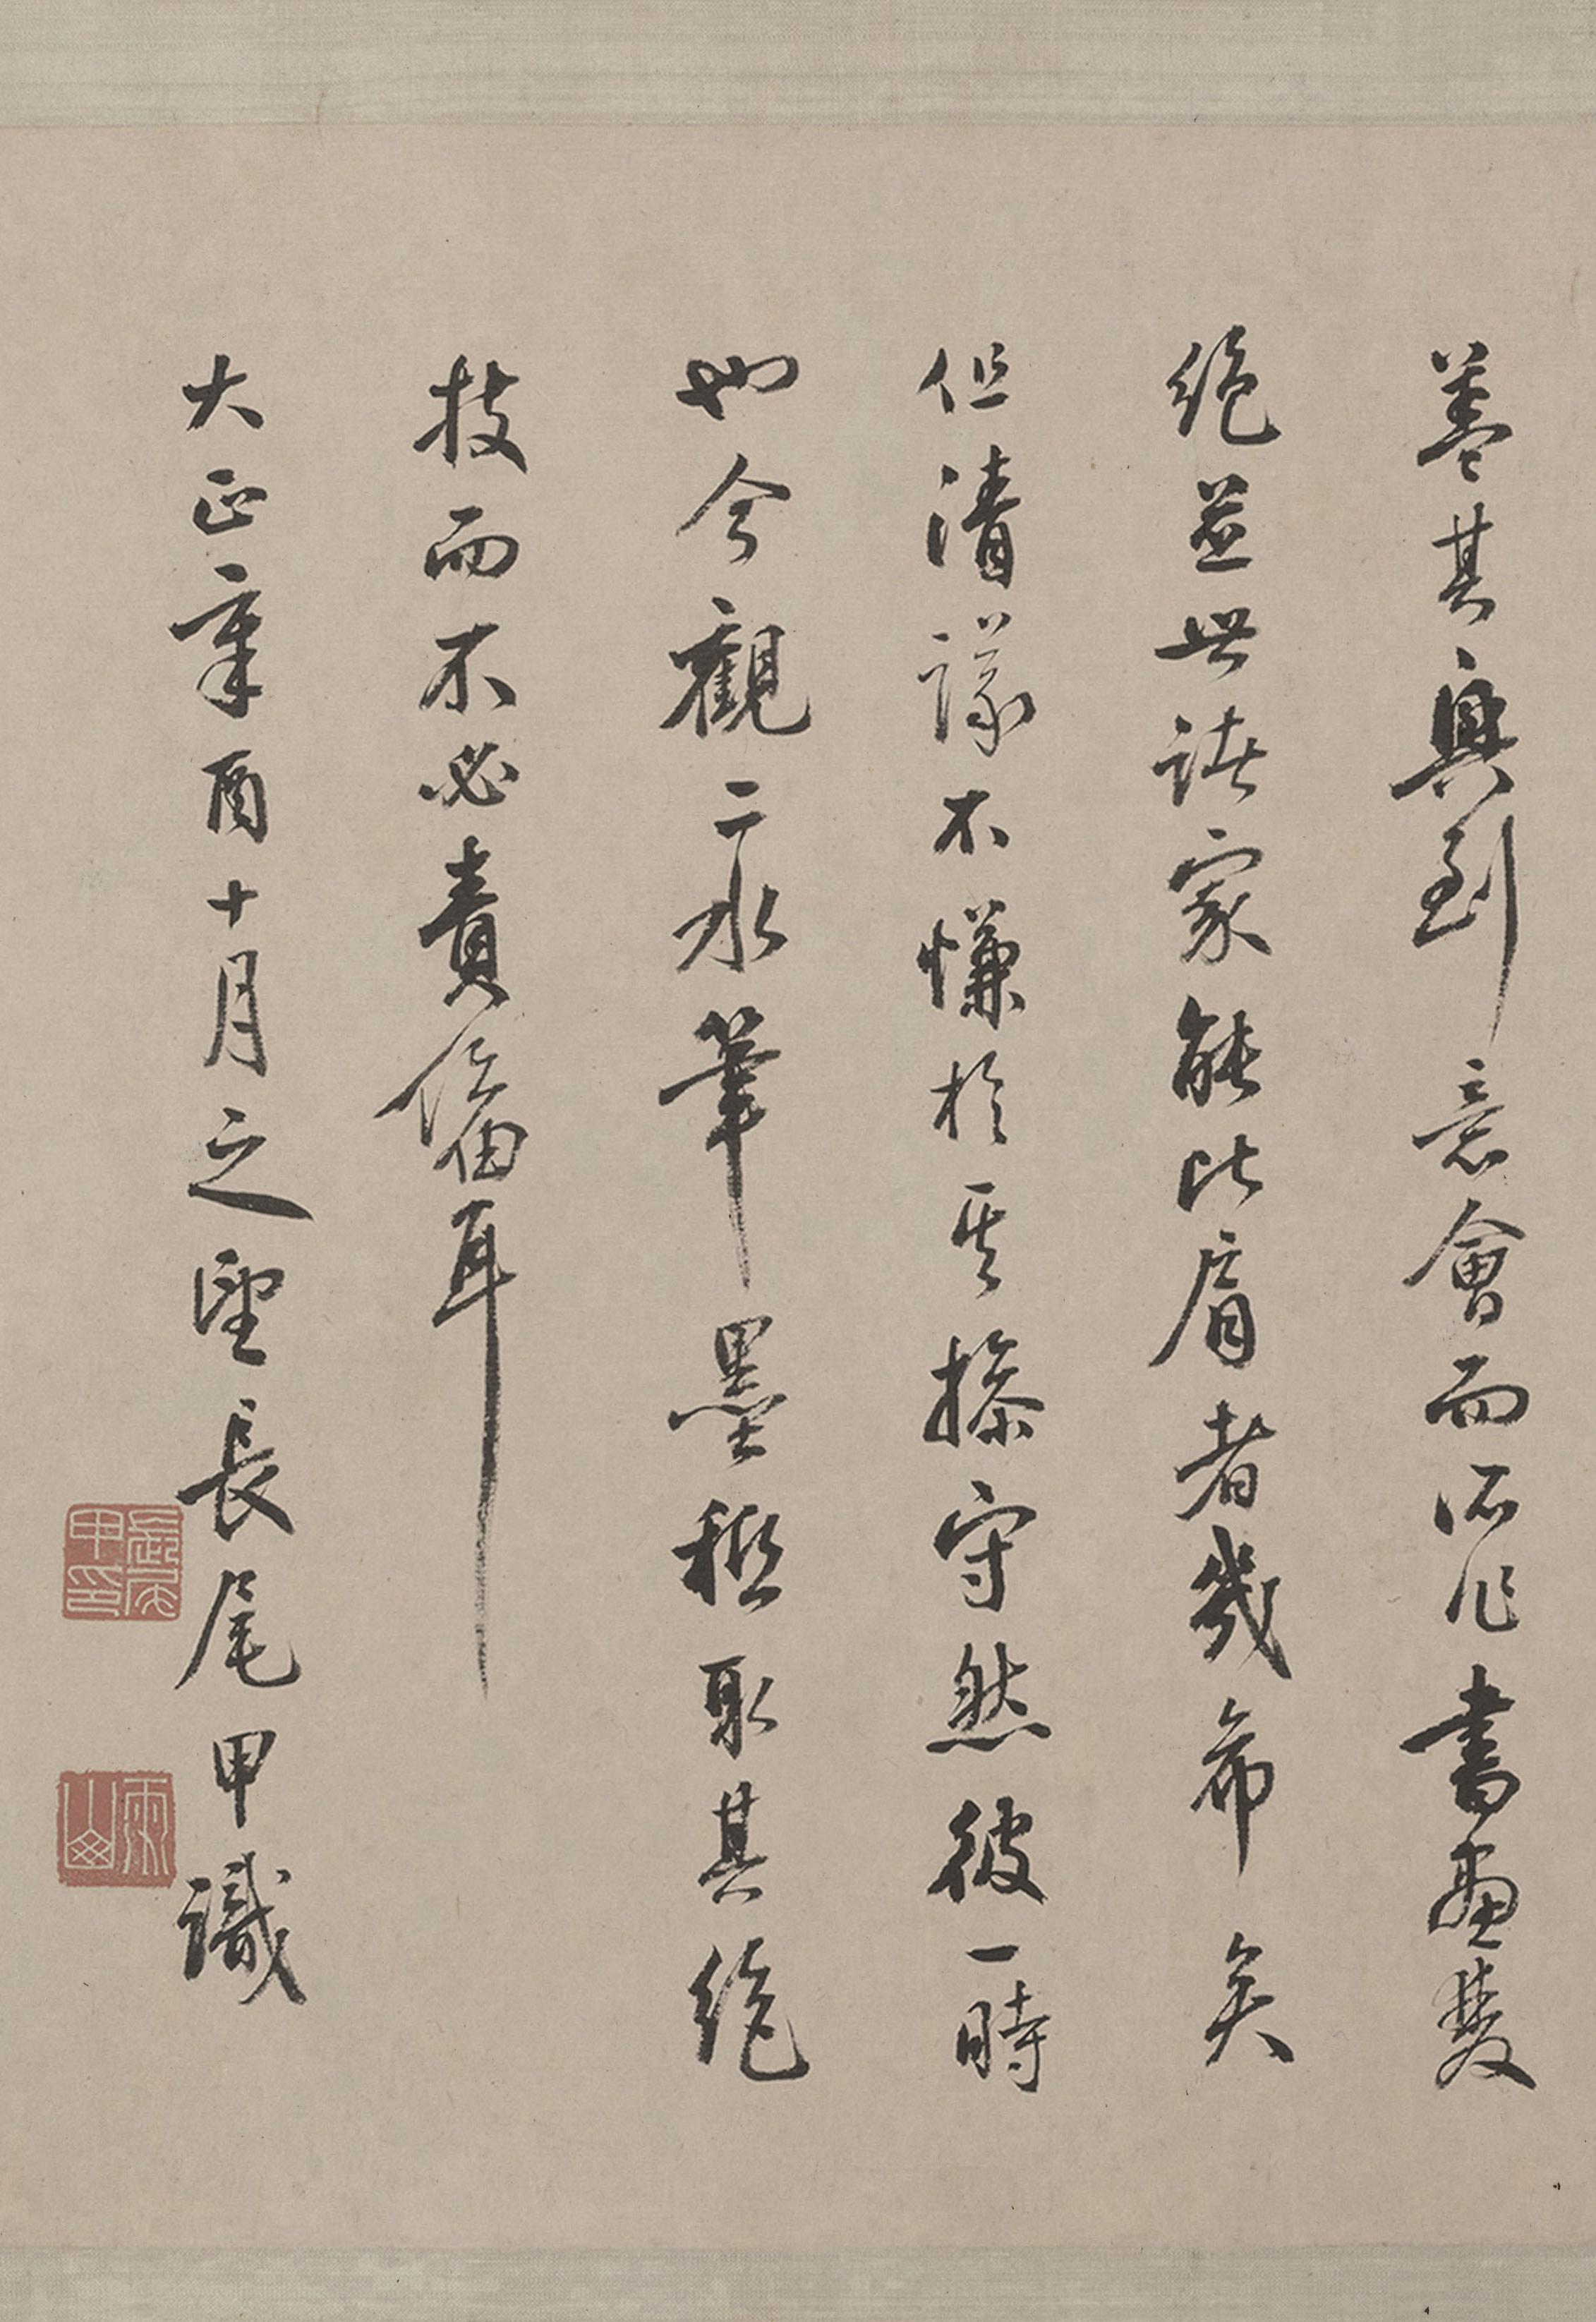 蓋其興到意會而所作書畫雙
絕並世諸家能比肩者幾希矣
但清議不慊於其操守然彼一時
也今觀二水筆墨秪取其絕
技而不必責備耳
大正辛酉十月之望長尾甲識
長尾甲印
雨山